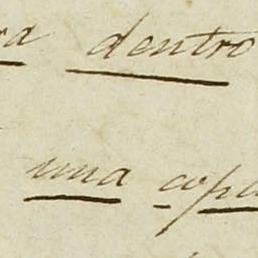 dentro
una copa